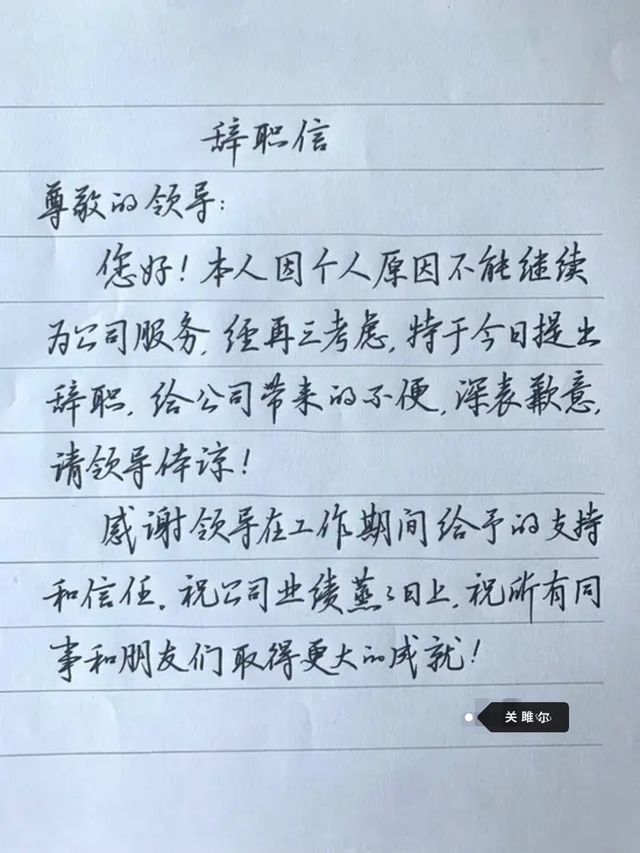 辞职信
尊敬的领导:
您好!本人因个人原因不能继续
为公司服务,经再三考虑,特于今日提出
辞职,给公司带来的不便,深表歉意,
请领导体谅!
感谢领导在工作期间给予的支持
和信任。祝公司业绩蒸蒸日上,祝所有同
事和朋友们取得更大的成就!
关雎尔